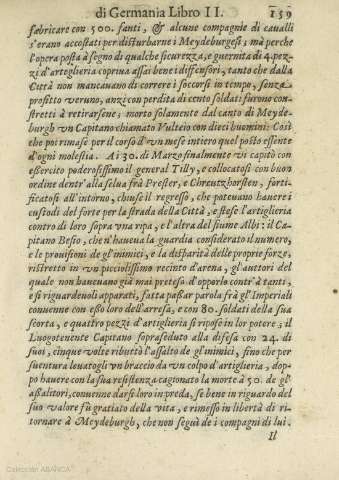 di Germania Libro II. 159
fabricare con 500. fanti, & alcune compagnie di cavalli
s'erano accostati per disturbarne i Meydeburgesi; mà perche
l'opera posta à segno di qualche sicurezza, e guernita di 4. pez-
zi d'arteglieria copriva assai bene i diffensori, tanto che dalla
Città non mancavano di correre i soccorsi in tempo, senza
profitto veruno, anzi con perdita di cento soldati furono con-
stretti à retirarsene; morto solamente dal canto di Meyde-
burgh un Capitano chiamato Vulteio con dieci huomini: Cosi
che poi rimase per il corso d'un mese intiero quel posto essente
d'ogni molestia. Ai 30. di Marzo finalmente vi capitò con
essercito poderosissimo il general Tilly, e collocatosi con buon
ordine dentr'alla selua frà Prester, e Chreutzhorsten, forti-
ficatosi all'intorno, chiuse il regresso, che potevano havere i
custodi del forte per la strada della Città, e stese l'artiglieria
contro di loro sopra una ripa, e l'altra del fiume Albi: il Ca-
pitano Besio, che n'haveva la guardia considerato il numero,
e le provisioni de gl'inimici, e la disparità delle proprie forze,
ristretto in un picciolissimo recinto d'arena, gl'auttori del
quale non havevano già mai pretesa d'opporlo contr'à tanti,
e si riguardevoli apparati, fatta passar parola frà gl'Imperiali
convenne con esso loro dell'arresa, e con 80. soldati della sua
scorta, e quattro pezzi d'artiglieria si ripose in lor potere; il
Luogotenente Capitano sopraseduto alla difesa con 24. di
suoi, cinque volte ributtò l'assalto de gl'inimici, fino che per
suentura levatogli un braccio da un colpo d'artiglieria, dop-
po havere con la sua resistenza cagionato la morte à 50. de gl'
assalitori, convenne darse loro in preda, se bene in riguardo del
suo valore fù gratiato della vita, e rimesso in libertà di ri-
tornare à Meydeburgh, che non seguì de i compagni di lui.
Il
Colección ABANCA